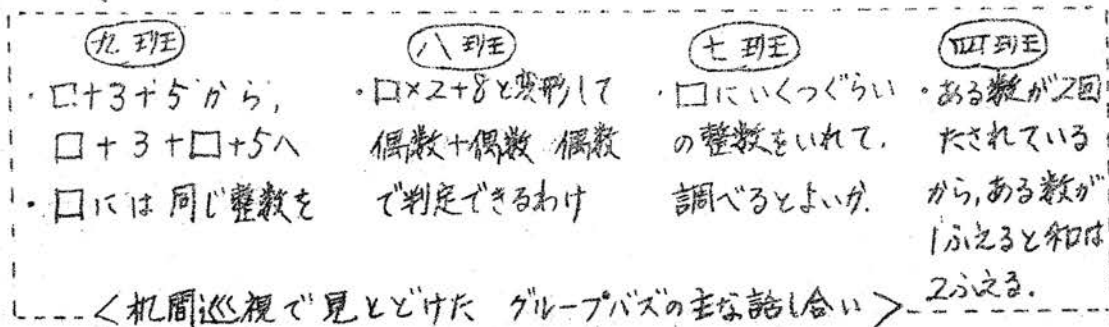 九班
・□+3+5から,
□+3+□+5へ
・□には同じ整数を
八班
・□×2+8と変形して
偶数+偶数 偶数
で判定できるわけ
七班
・□にいくつぐらい
の整数をいれて,
調べるとよいか.
四班
・ある数が2回
たされている
から,ある数が
1ふえると和は
2ふえる.
<机間巡視で見とどけた グループバズの主な話し合い>